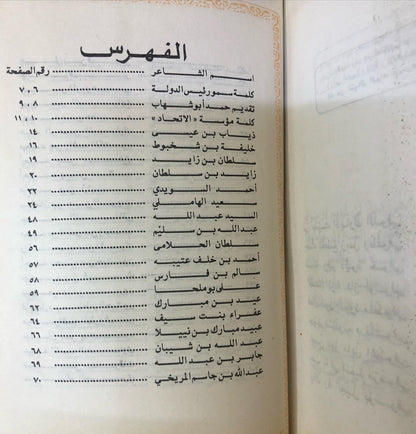 الفهرس
اسم الشاعر ........ رقم الصفحة
كلمة سمو رئيس الدولة ........ ٦ ، ٧
تقديم حمد أبو شهاب ........ ٨ ، ٩
كلمة مؤسسة «الاتحاد» ........ ١٠ ، ١١
ذياب بن عيسى ........ ١٤
خليفة بن شخبوط ........ ١٦
سلطان بن زايد ........ ١٩
زايد بن سلطان ........ ٢٠
أحمد السويدي ........ ٢٢
سعيد الهاملي ........ ٢٤
السيد عبد الله ........ ٤٨
عبد الله بن سليم ........ ٤٩
سلطان الحلامى ........ ٥٦
أحمد بن خلف عتيبه ........ ٥٧
سالم بن فارس ........ ٥٨
على بو ملحا ........ ٥٩
عيد بن مبارك ........ ٦٢
عفراء بنت سيف ........ ٦٤
عبيد مبارك بن نييلا ........ ٦٦
عبد الله بن شيبان ........ ٦٨
جابر بن عبد الله ........ ٦٩
عبد الله بن جاسم المريخي ........ ٧٠